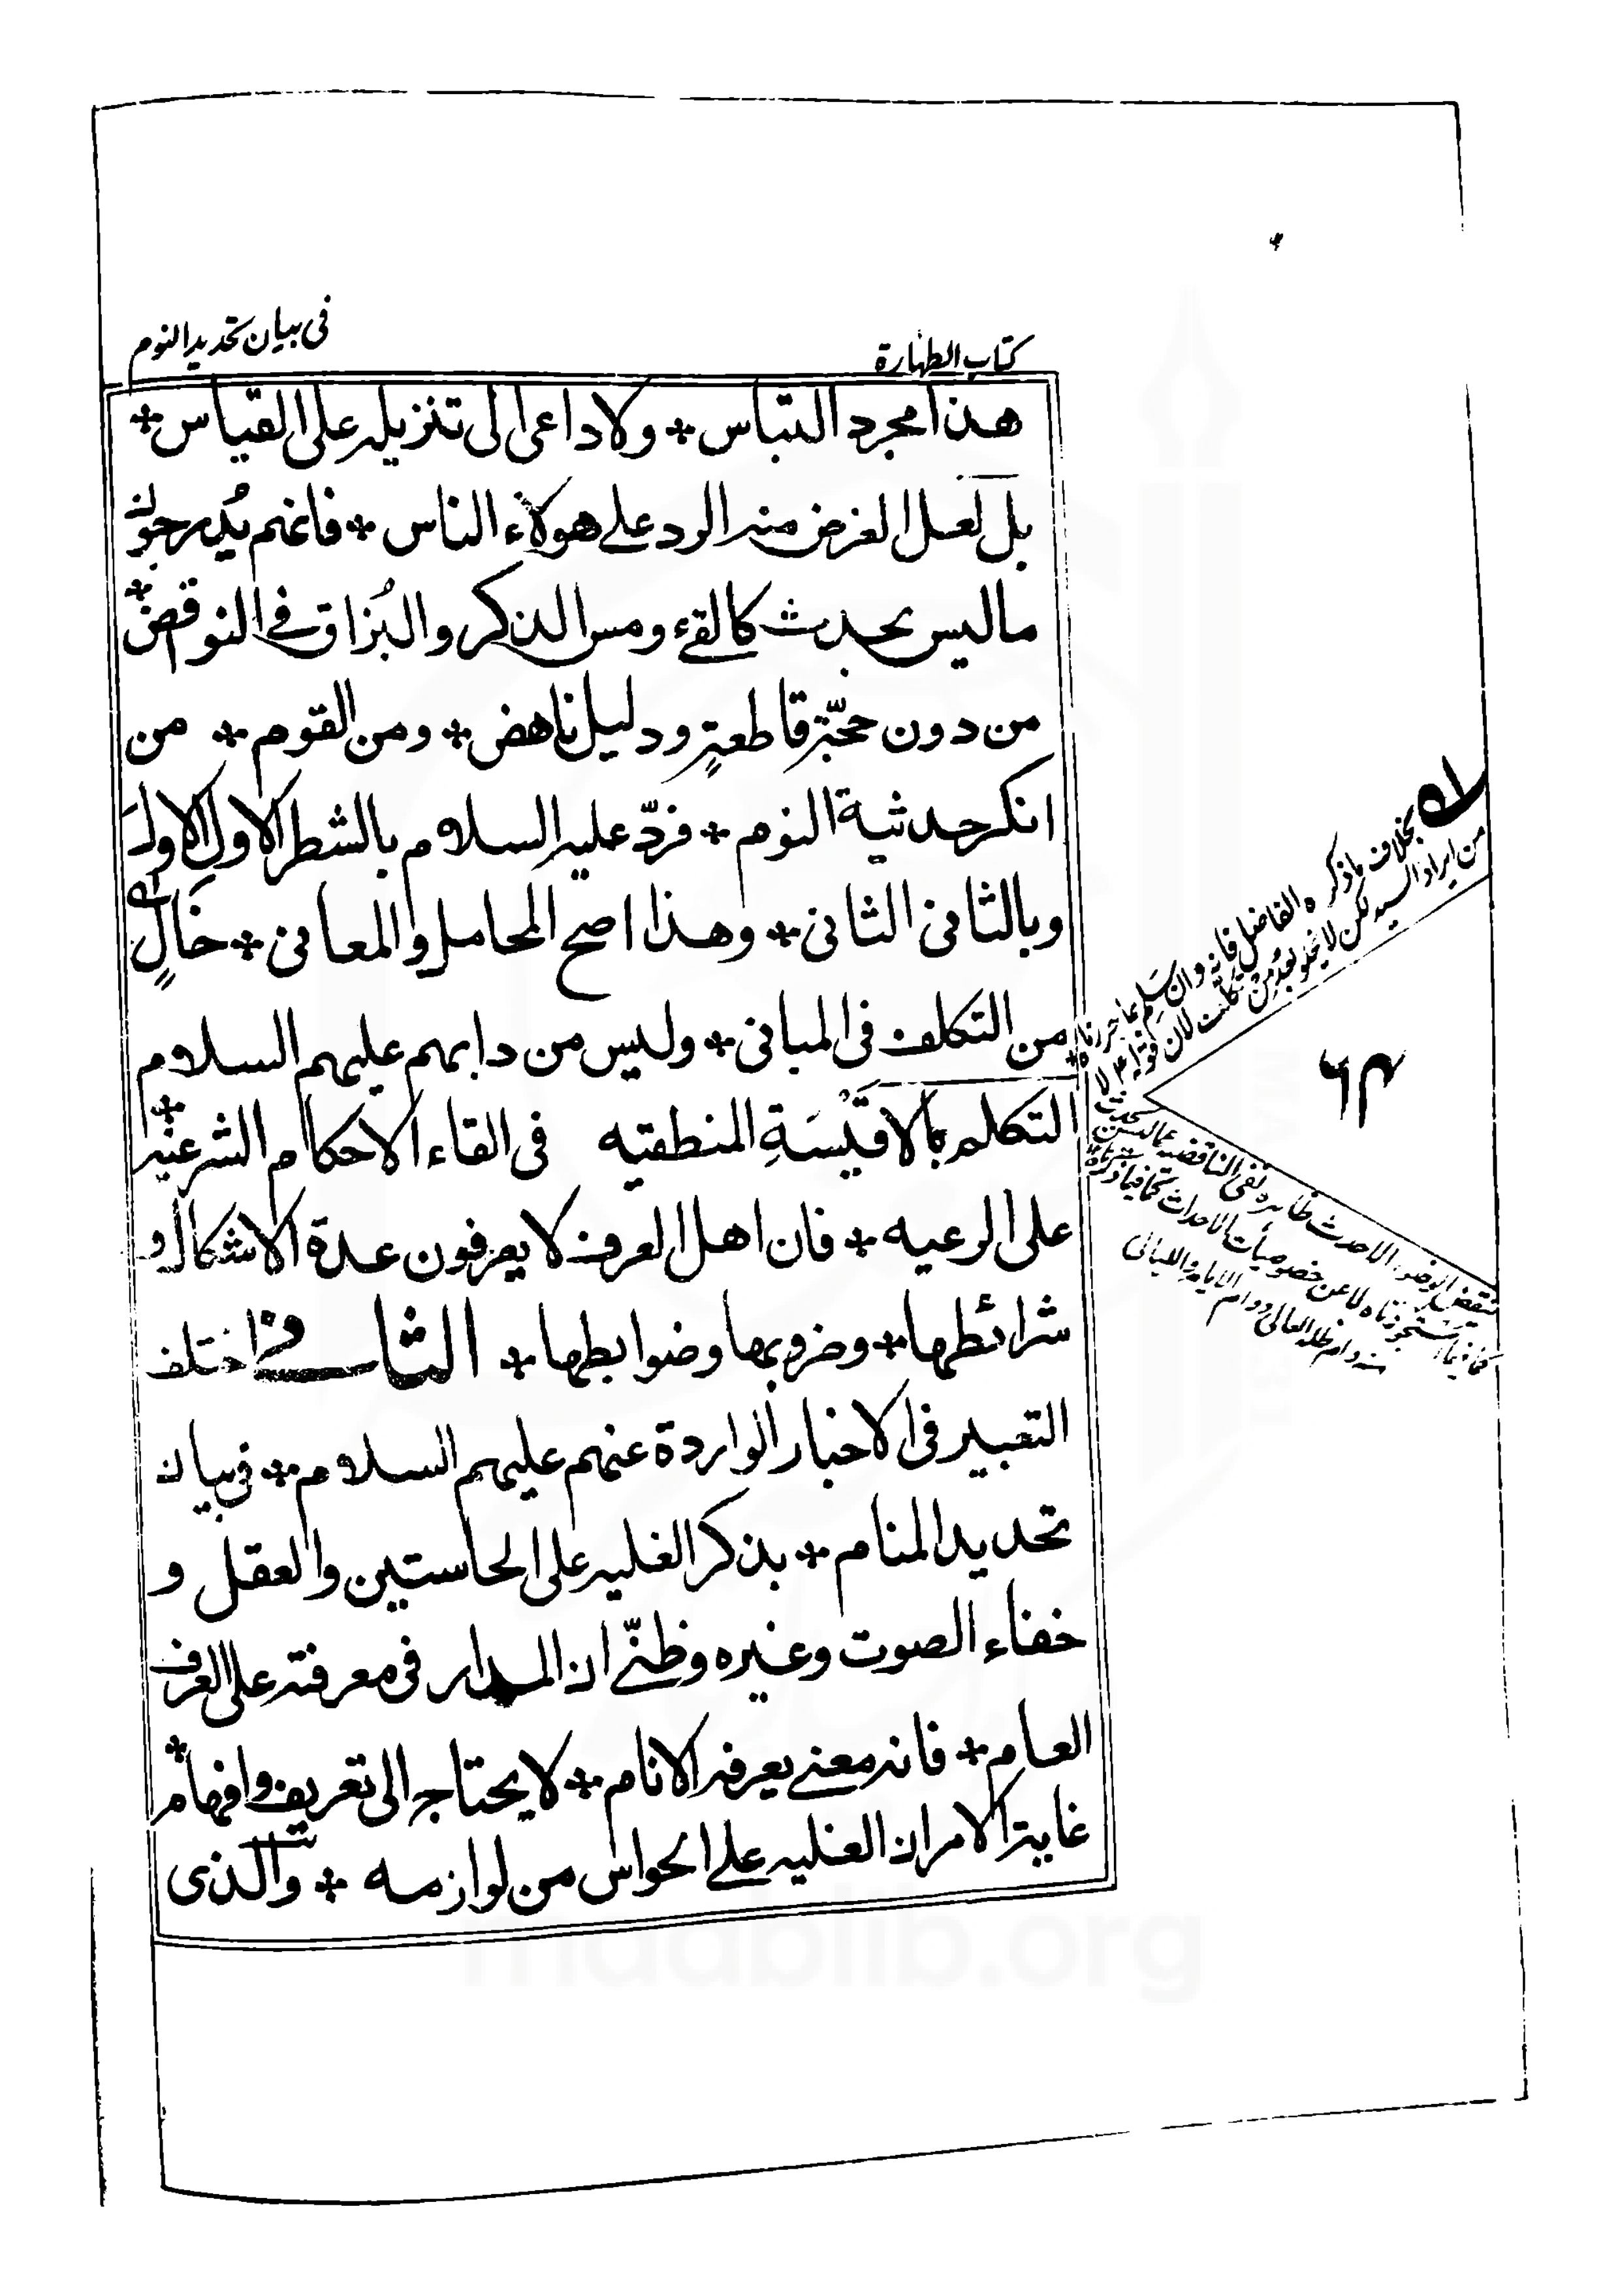 كتاب الطهارة
فى بيان تحديد النوم
هذا مجرد التباس * ولا داعى الى تنزيله على القياس *
بل لعل الغرض منه الرد على هولاء الناس * فانهم يُدرجون
ما ليس بحدث كالقے ومس الذكر والبُزاق فے النوقض *
من دون حجّة قاطعةٍ ودليل ناهض * ومن القوم * من
انكر حدثية النوم * فردّ عليه السلام بالشطر الاول الاول
وبالثانى الثانى * وهذا اصح المحامل والمعانى * خَالٍ
من التكلف فى المبانى * وليس من دابهم عليهم السلام
التكلم بالاقيْسَةِ المنطقيه فى القاء الاحكام الشرعيه *
على الرعيه * فان اهل العرف لا يعرفون عدة الاشكال و
شرائطها * وضروبها وضوابطها * الثانے اختلف
التعبير فى الاخبار الواردة عنهم عليهم السلام * فى بيان
تحديد المنام * بذكر الغلبه على الحاستين والعقل و
خفاء الصوت وغيره وظنّے ان المدار فى معرفته على العرف
العام * فانه معنے يعرفه الانام * لا يحتاج الى تعريف وافهام *
غاية الامر ان الغلبه علے الحواس من لوازمه * والذى
بخلاف ما ذكره الفاضل فانه وان سَلِم عما حررناه
من ايراد السيد لكن لا يخلو بعدُ من تكلف لان قوله ع لا
ينقض الوضوء الا حدث ظاهره نفى الناقضيه عما ليس بحدث
لا عن خصوصيات الاحداث كما فيما ذكره
منه دام ظله العالى دوام الايام والليالى
٦٣